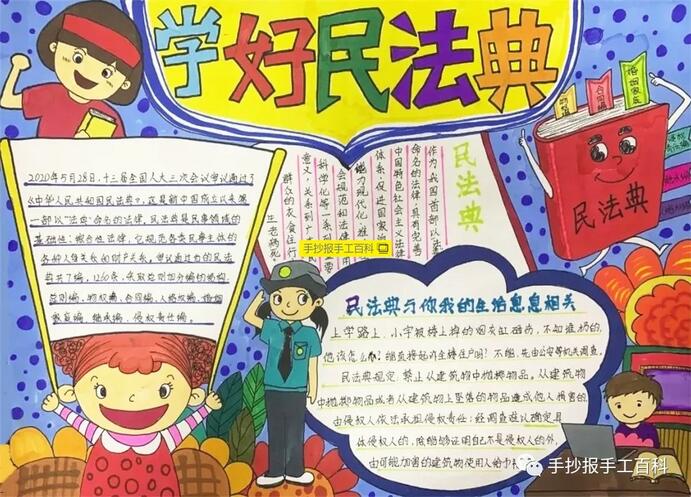 学好民法典
2020年5月28日,十三届全国人大三次会议审议通过了
《中华人民共和国民法典》,这是新中国成立以来第
一部以"法典"命名的法律,民法典是民事领域的
基础性、综合性法律,它规范各类民事主体的
各种人身关系和财产关系,审议通过的民法
典共7编、1260条,
总则编、物权编、合同编、人格权编、婚姻
家庭编、继承编、侵权责任编。
民法典
作为我国首部以法典
命名的法律,具有完善
中国特色社会主义法律
体系,促进国家治
能力现代化,推
会规范和法律
科学化等一系
意义,关系到广
群众的衣食住行
生老病死。
手抄报手工百科
合同编
婚姻家庭
民法典
民法典与你我的生活息息相关
上学路上,小宇被楼上掉的烟灰缸砸伤,不知谁扔的,
他该怎么办?能直接起诉全楼住户吗?不能,先由公安等机关调查。
民法典规定:禁止从建筑物中抛掷物品。从建筑物
中抛掷物品或者从建筑物上坠落的物品造成他人损害的,
由侵权人依法承担侵权责任;经调查难以确定具
体侵权人的,除能够证明自己不是侵权人的外,
由可能加害的建筑物使用人给
手抄报手工百科